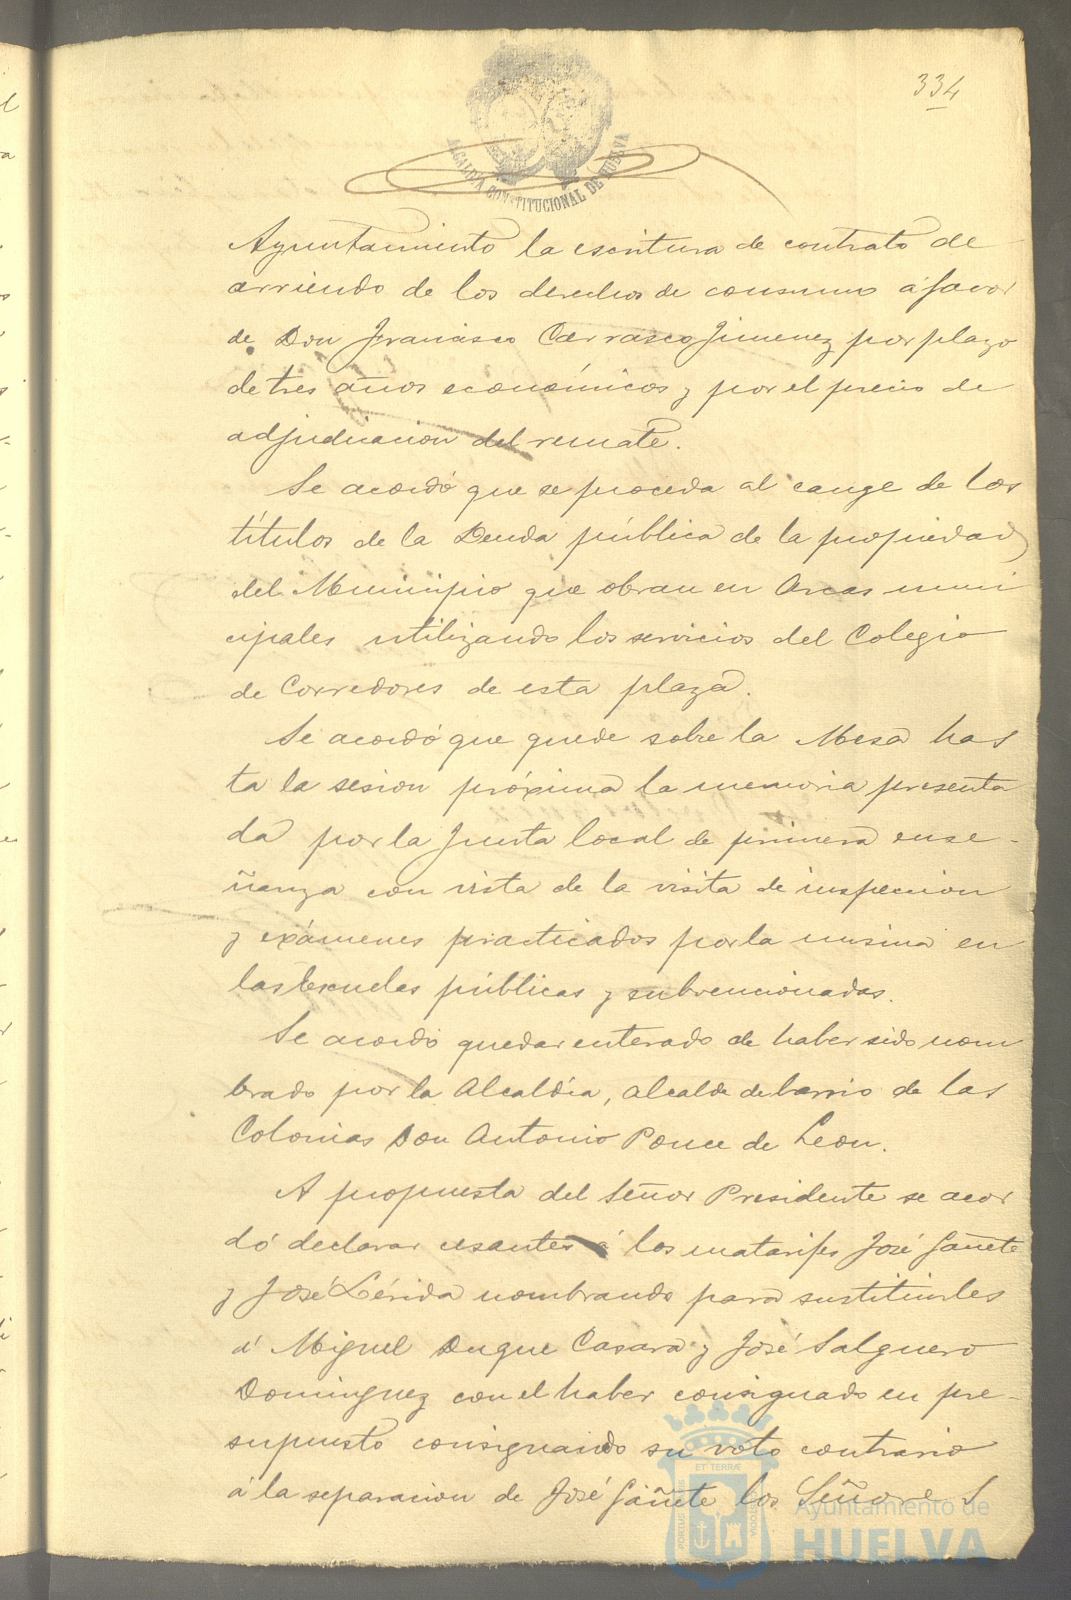 334
ALCALDÍA CONSTITUCIONAL DE HUELVA
Ayuntamiento la escritura de contrato de
arriendo de los derechos de consumo á favor
de Don Francisco Carrasco Jimenez por plazo
de tres años económicos y por el precio de
adjudicacion del remate.
Se acordó que se proceda al cange de los
títulos de la Deuda pública de la propiedad
del Municipio que obran en Arcas muni
cipales utilizando los servicios del Colegio
de Corredores de esta plaza.
Se acordó que quede sobre la Mesa has
ta la sesion próxima la memoria presenta
da por la Junta local de primera ense-
ñanza con vista de la visita de inspeccion
y exámenes practicados por la misma en
las Escuelas públicas y subvencionadas.
Se acordó quedar enterado de haber sido nom
brado por la Alcaldía, alcalde de barrio de las
Colonias Don Antonio Ponce de Leon.
A propuesta del Señor Presidente se acor
dó declarar cesantes á los matarifes José Gañete
y José Lérida nombrando para sustituirles
á Miguel Duque Casara y José Salguero
Dominguez con el haber consignado en pre-
supuesto consignando su voto contrario
á la separacion de José Gañete los Señores
PORTUS MARIS ET TERRÆ CUSTODIA
Ayuntamiento de
HUELVA